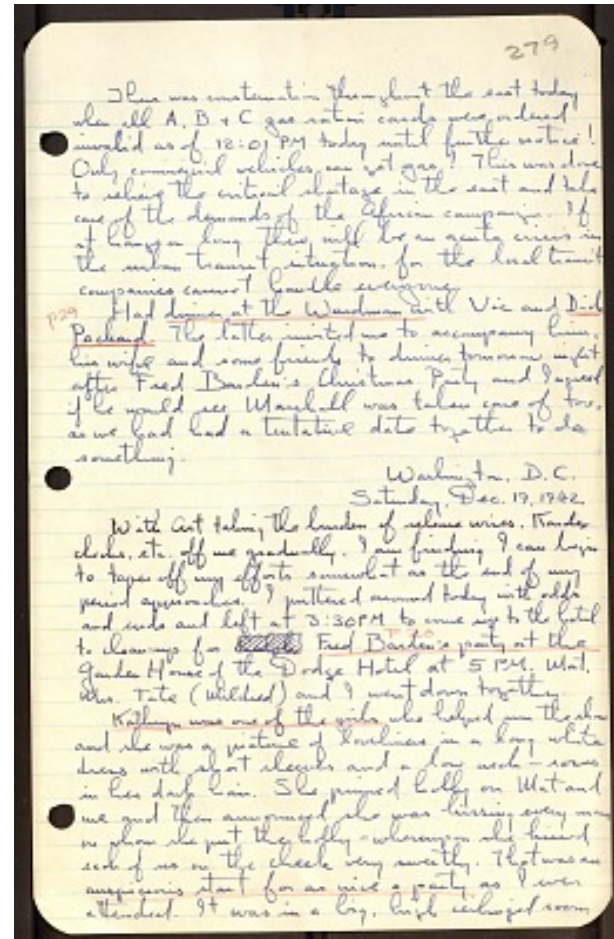 279
There was consternation throughout the east today
when all A, B + C gas ration cards were ordered
invalid as of 12:01 PM today until further notice!
Only commercial vehicles can get gas! This was done
to relieve the critical shortage in the east and take
care of the demands of the African campaign. If
it hangs on long there will be an acute crisis in
the urban transit situation, for the local transit
companies cannot handle everyone.
p29
Had dinner at the Wardman with Vic and Dick
Packard. The latter invited me to accompany him,
his wife and some friends to dinner tomorrow night
after Fred Barden's Christmas Party and I agreed
if he would see Marshall was taken care of too,
as we had had a tentative date together to do
something.
Washington, D.C.
Saturday, Dec. 19, 1942
With Art taking the burden of release wires,
checks, etc. off me gradually, I am finding I can begin
to taper off my efforts somewhat as the end of my
period approaches. I puttered around today with odds
and ends and left at 3:30 PM to come up to the hotel
to clean up for Fred Barden's party at the
Garden House of the Dodge Hotel at 5 PM. Mat,
Mrs. Tate (Mildred) and I went down together.
Kathryn was one of the girls who helped run the show
and she was a picture of loveliness in a long white
dress with short sleeves and a low neck - roses
in her dark hair. She pinned holly on Mat and
me and then announced she was kissing every man
on whom she put the holly - whereupon she kissed
each of us on the cheek very sweetly. That was an
auspicious start for as nice a party as I ever
attended. It was in a big, high ceilinged room